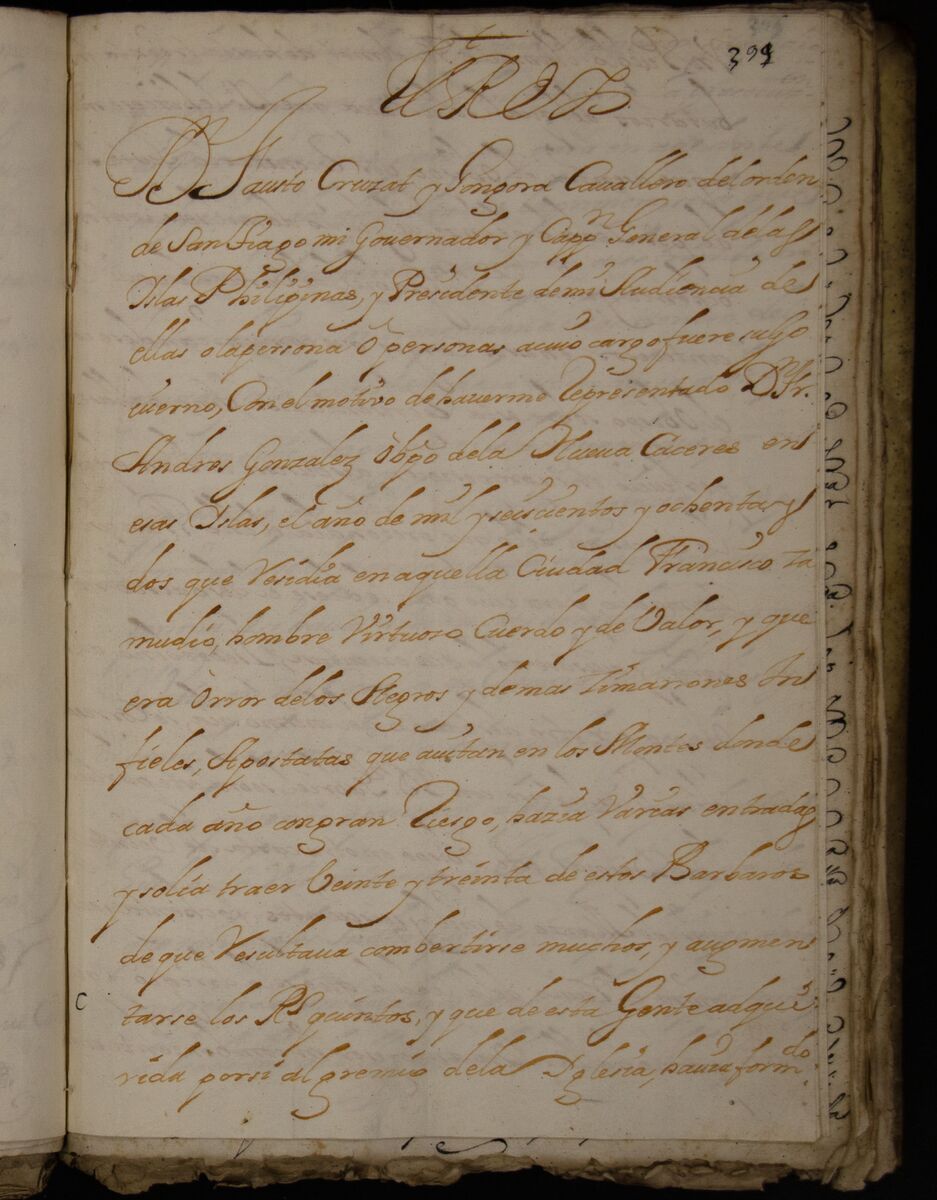 399
El Rey
Dn Fausto Cruzat y Gongora Cavallero del orden
de Santiago mi Governador y Cappn General de las
Islas Philipinas, y Presidente de mi Audiencia de
ellas o la persona ô personas a cuio cargo fuere su go
vierno, Con el motivo de haverme Representado Dn Fr.
Andres Gonzalez Obpo de la Nueva Caceres en
esas Islas, el año de mil y seiscientos y ochenta y
dos que Residia en aquella Ciudad Francisco Ta
mudio, hombre Virtuoso Cuerdo y de Valor, y que
era òrror de los Negros y demas Zimarrones In
fieles, Apostatas que auitan en los Montes donde
cada año con gran Riesgo, hazia Varias entradas
y solia traer Veinte y treinta de estos Barbaros
de que Resultaua combertirse muchos, y augmen
tarse los Rs quintos, y que de esta Gente adque
rida por si al gremio de la Iglesia, hauia formdo